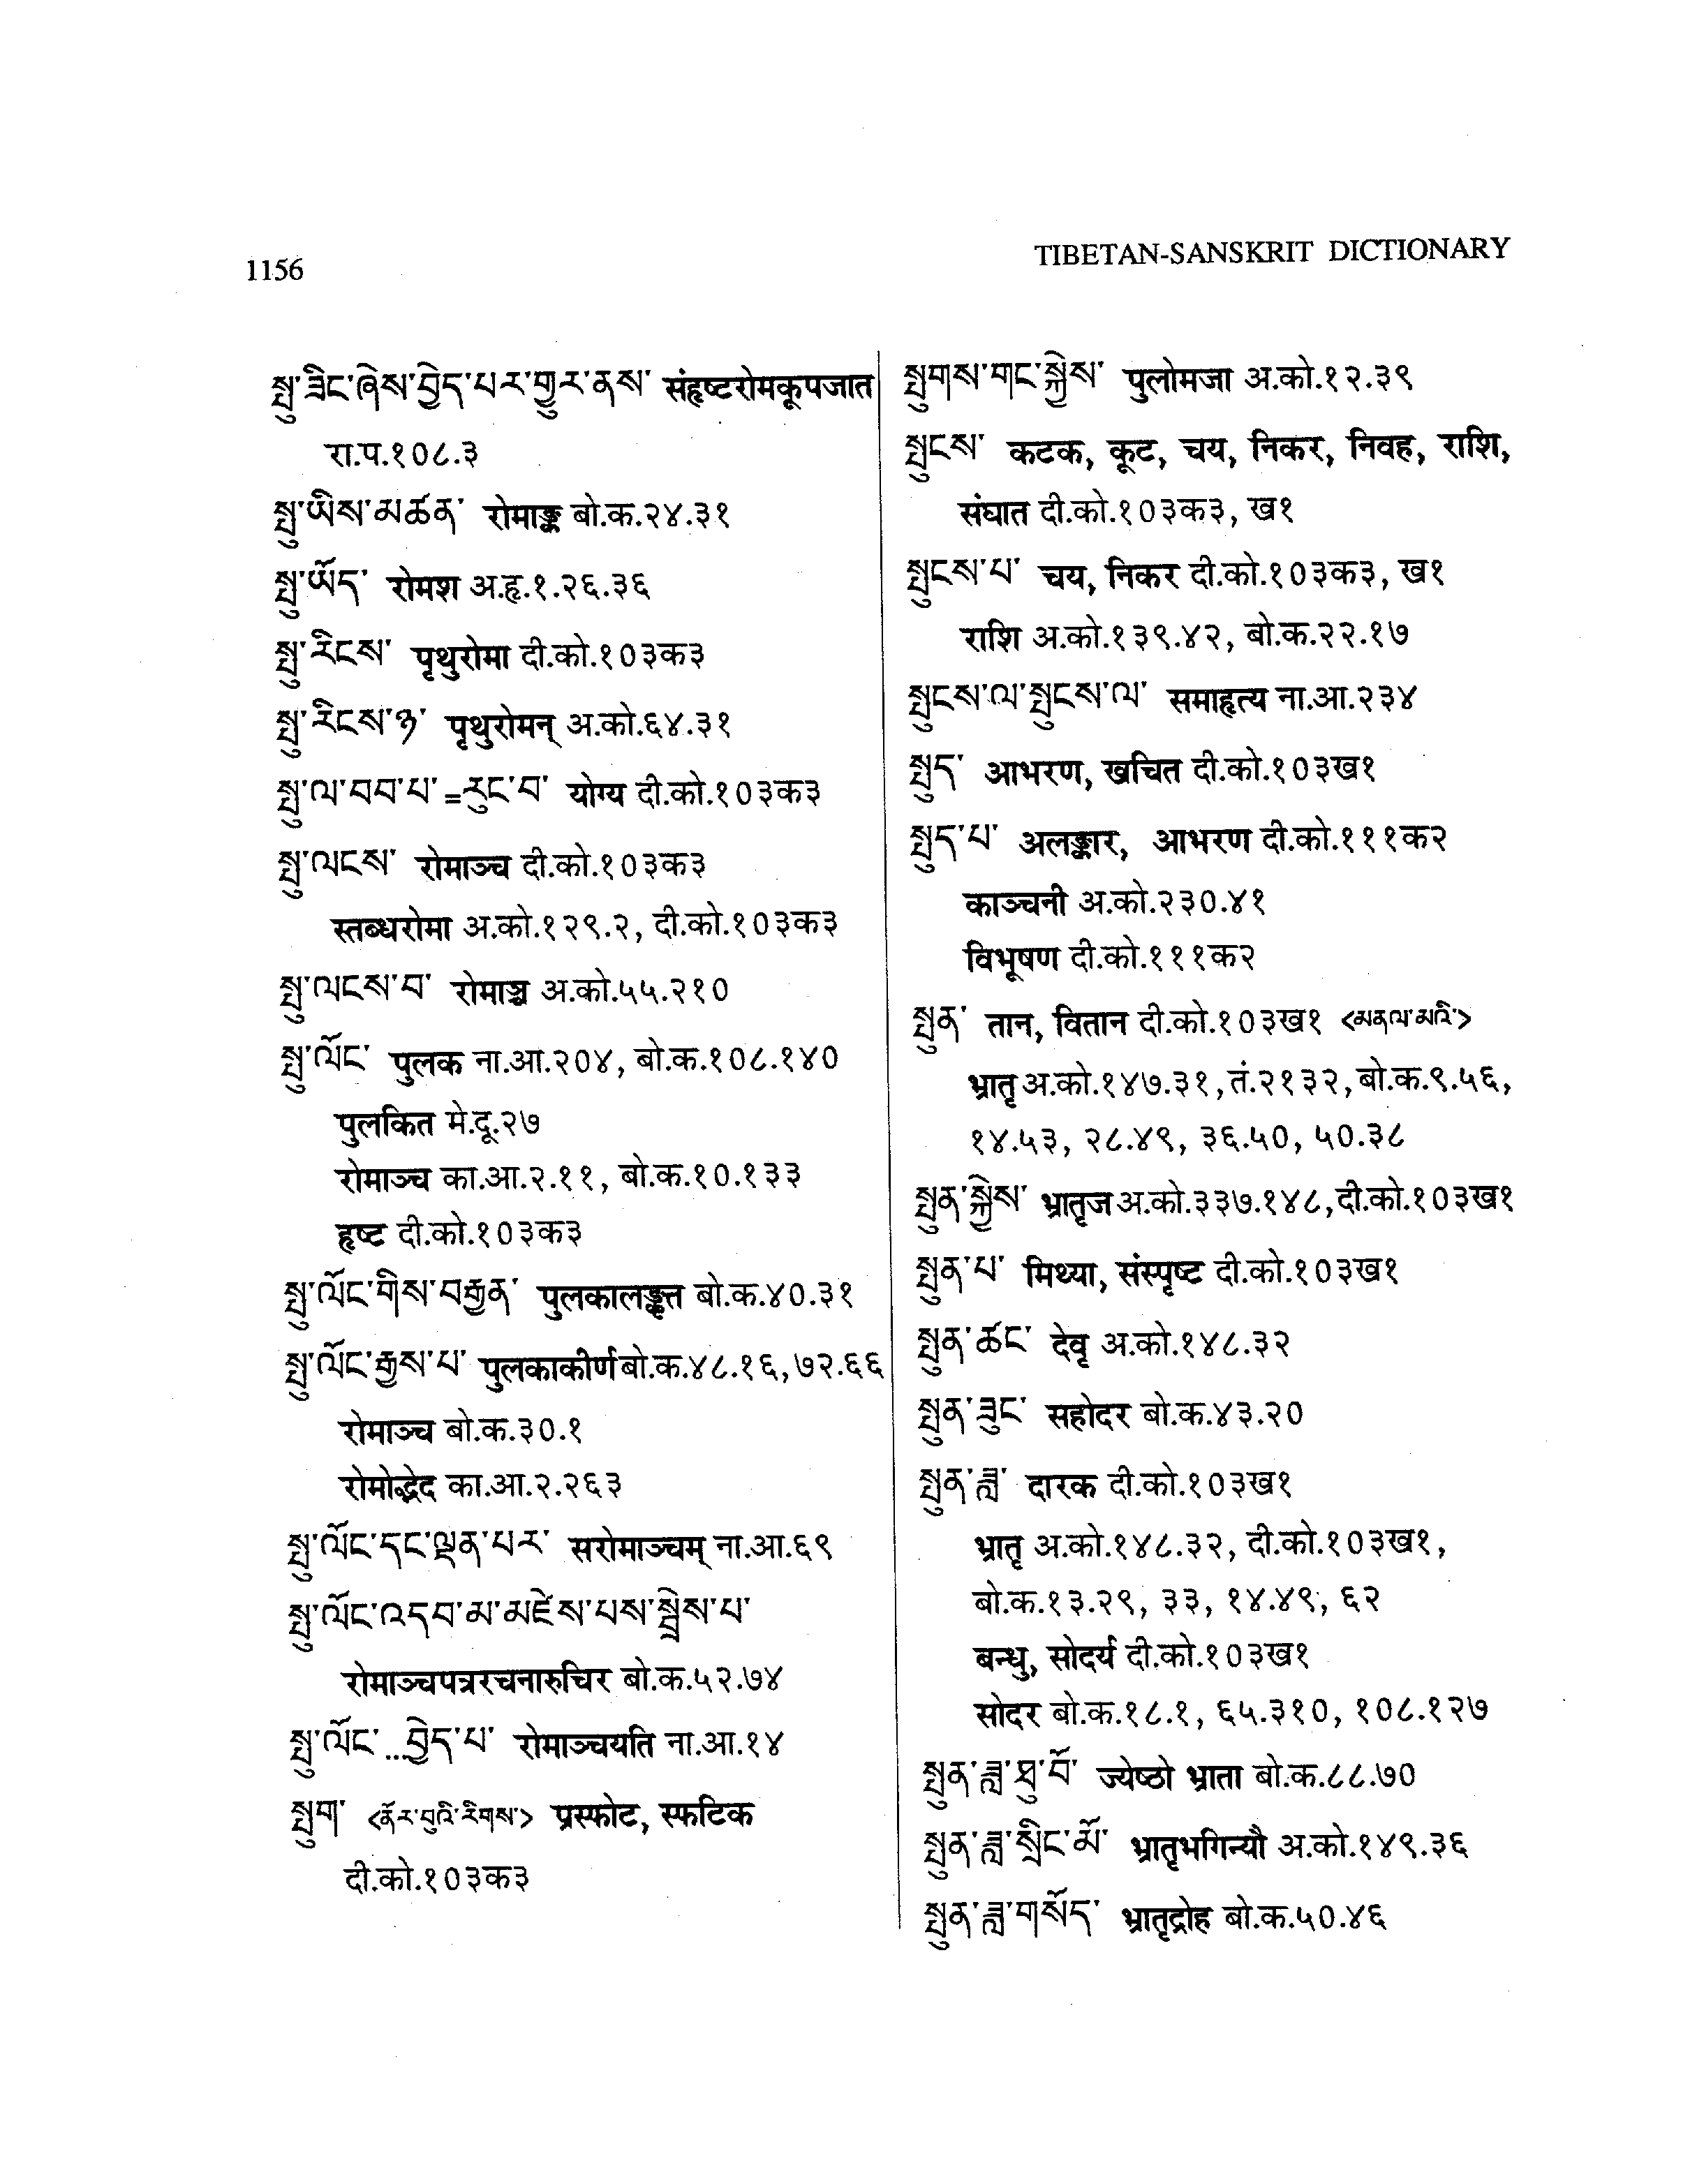 1156
TIBETAN-SANSKRIT DICTIONARY
སྤུ་ཟིང་ཞེས་བྱེད་པར་གྱུར་ནས་ संहृष्टरोमकूपजात
रा.प.१०८.३
སྤུ་ཡིས་མཚན་ रोमाङ्क बो.क.२४.३१
སྤུ་ཡོད་ रोमश अ.हृ.१.२६.३६
སྤུ་རིངས་ पृथुरोमा दी.को.१०३क३
སྤུ་རིངས་ཉ་ पृथुरोमन् अ.को.६४.३१
སྤུ་ལ་བབ་པ་=རུང་བ་ योग्य दी.को.१०३क३
སྤུ་ལངས་ रोमाञ्च दी.को.१०३क३
स्तब्धरोमा अ.को.१२९.२, दी.को.१०३क३
སྤུ་ལངས་བ་ रोमाञ्च अ.को.५५.२१०
སྤུ་ལོང་ पुलक ना.आ.२०४, बो.क.१०८.१४०
पुलकित मे.दू.२७
रोमाञ्च का.आ.२.११, बो.क.१०.१३३
हृष्ट दी.को.१०३क३
སྤུ་ལོང་གིས་བརྒྱན་ पुलकालङ्कृत बो.क.४०.३१
སྤུ་ལོང་རྒྱས་པ་ पुलकाकीर्ण बो.क.४८.१६, ७२.६६
रोमाञ्च बो.क.३०.१
रोमोद्भेद का.आ.२.२६३
སྤུ་ལོང་དང་ལྡན་པར་ सरोमाञ्चम् ना.आ.६९
སྤུ་ལོང་འདབ་མ་མཛེས་པས་སྦྲེས་པ་
रोमाञ्चपत्ररचनारुचिर बो.क.५२.७४
སྤུ་ལོང་...བྱེད་པ་ रोमाञ्चयति ना.आ.१४
སྤུག་ <ནོར་བུའི་རིགས་> प्रस्फोट, स्फटिक
दी.को.१०३क३
སྤུགས་གང་སྐྱེས་ पुलोमजा अ.को.१२.३९
སྤུངས་ कटक, कूट, चय, निकर, निवह, राशि,
संघात दी.को.१०३क३, ख१
སྤུངས་པ་ चय, निकर दी.को.१०३क३, ख१
राशि अ.को.१३९.४२, बो.क.२२.१७
སྤུངས་ལ་སྤུངས་ལ་ समाहृत्य ना.आ.२३४
སྤུད་ आभरण, खचित दी.को.१०३ख१
སྤུད་པ་ अलङ्कार, आभरण दी.को.१११क२
काञ्चनी अ.को.२३०.४१
विभूषण दी.को.१११क२
སྤུན་ तान, वितान दी.को.१०३ख१ <མནལ་མའི་>
भ्रातृ अ.को.१४७.३१, तं.२१३२, बो.क.९.५६,
१४.५३, २८.४९, ३६.५०, ५०.३८
སྤུན་སྐྱེས་ भ्रातृज अ.को.३३७.१४८, दी.को.१०३ख१
སྤུན་པ་ मिथ्या, संस्पृष्ट दी.को.१०३ख१
སྤུན་ཚང་ देवृ अ.को.१४८.३२
སྤུན་ཟུང་ सहोदर बो.क.४३.२०
སྤུན་ཟླ་ दारक दी.को.१०३ख१
भ्रातृ अ.को.१४८.३२, दी.को.१०३ख१,
बो.क.१३.२९, ३३, १४.४९, ६२
बन्धु, सोदर्य दी.को.१०३ख१
सोदर बो.क.१८.१, ६५.३१०, १०८.१२७
སྤུན་ཟླ་ཐུ་བོ་ ज्येष्ठो भ्राता बो.क.८८.७०
སྤུན་ཟླ་སྲིང་མོ་ भ्रातृभगिन्यौ अ.को.१४९.३६
སྤུན་ཟླ་གསོད་ भ्रातृद्रोह बो.क.५०.४६